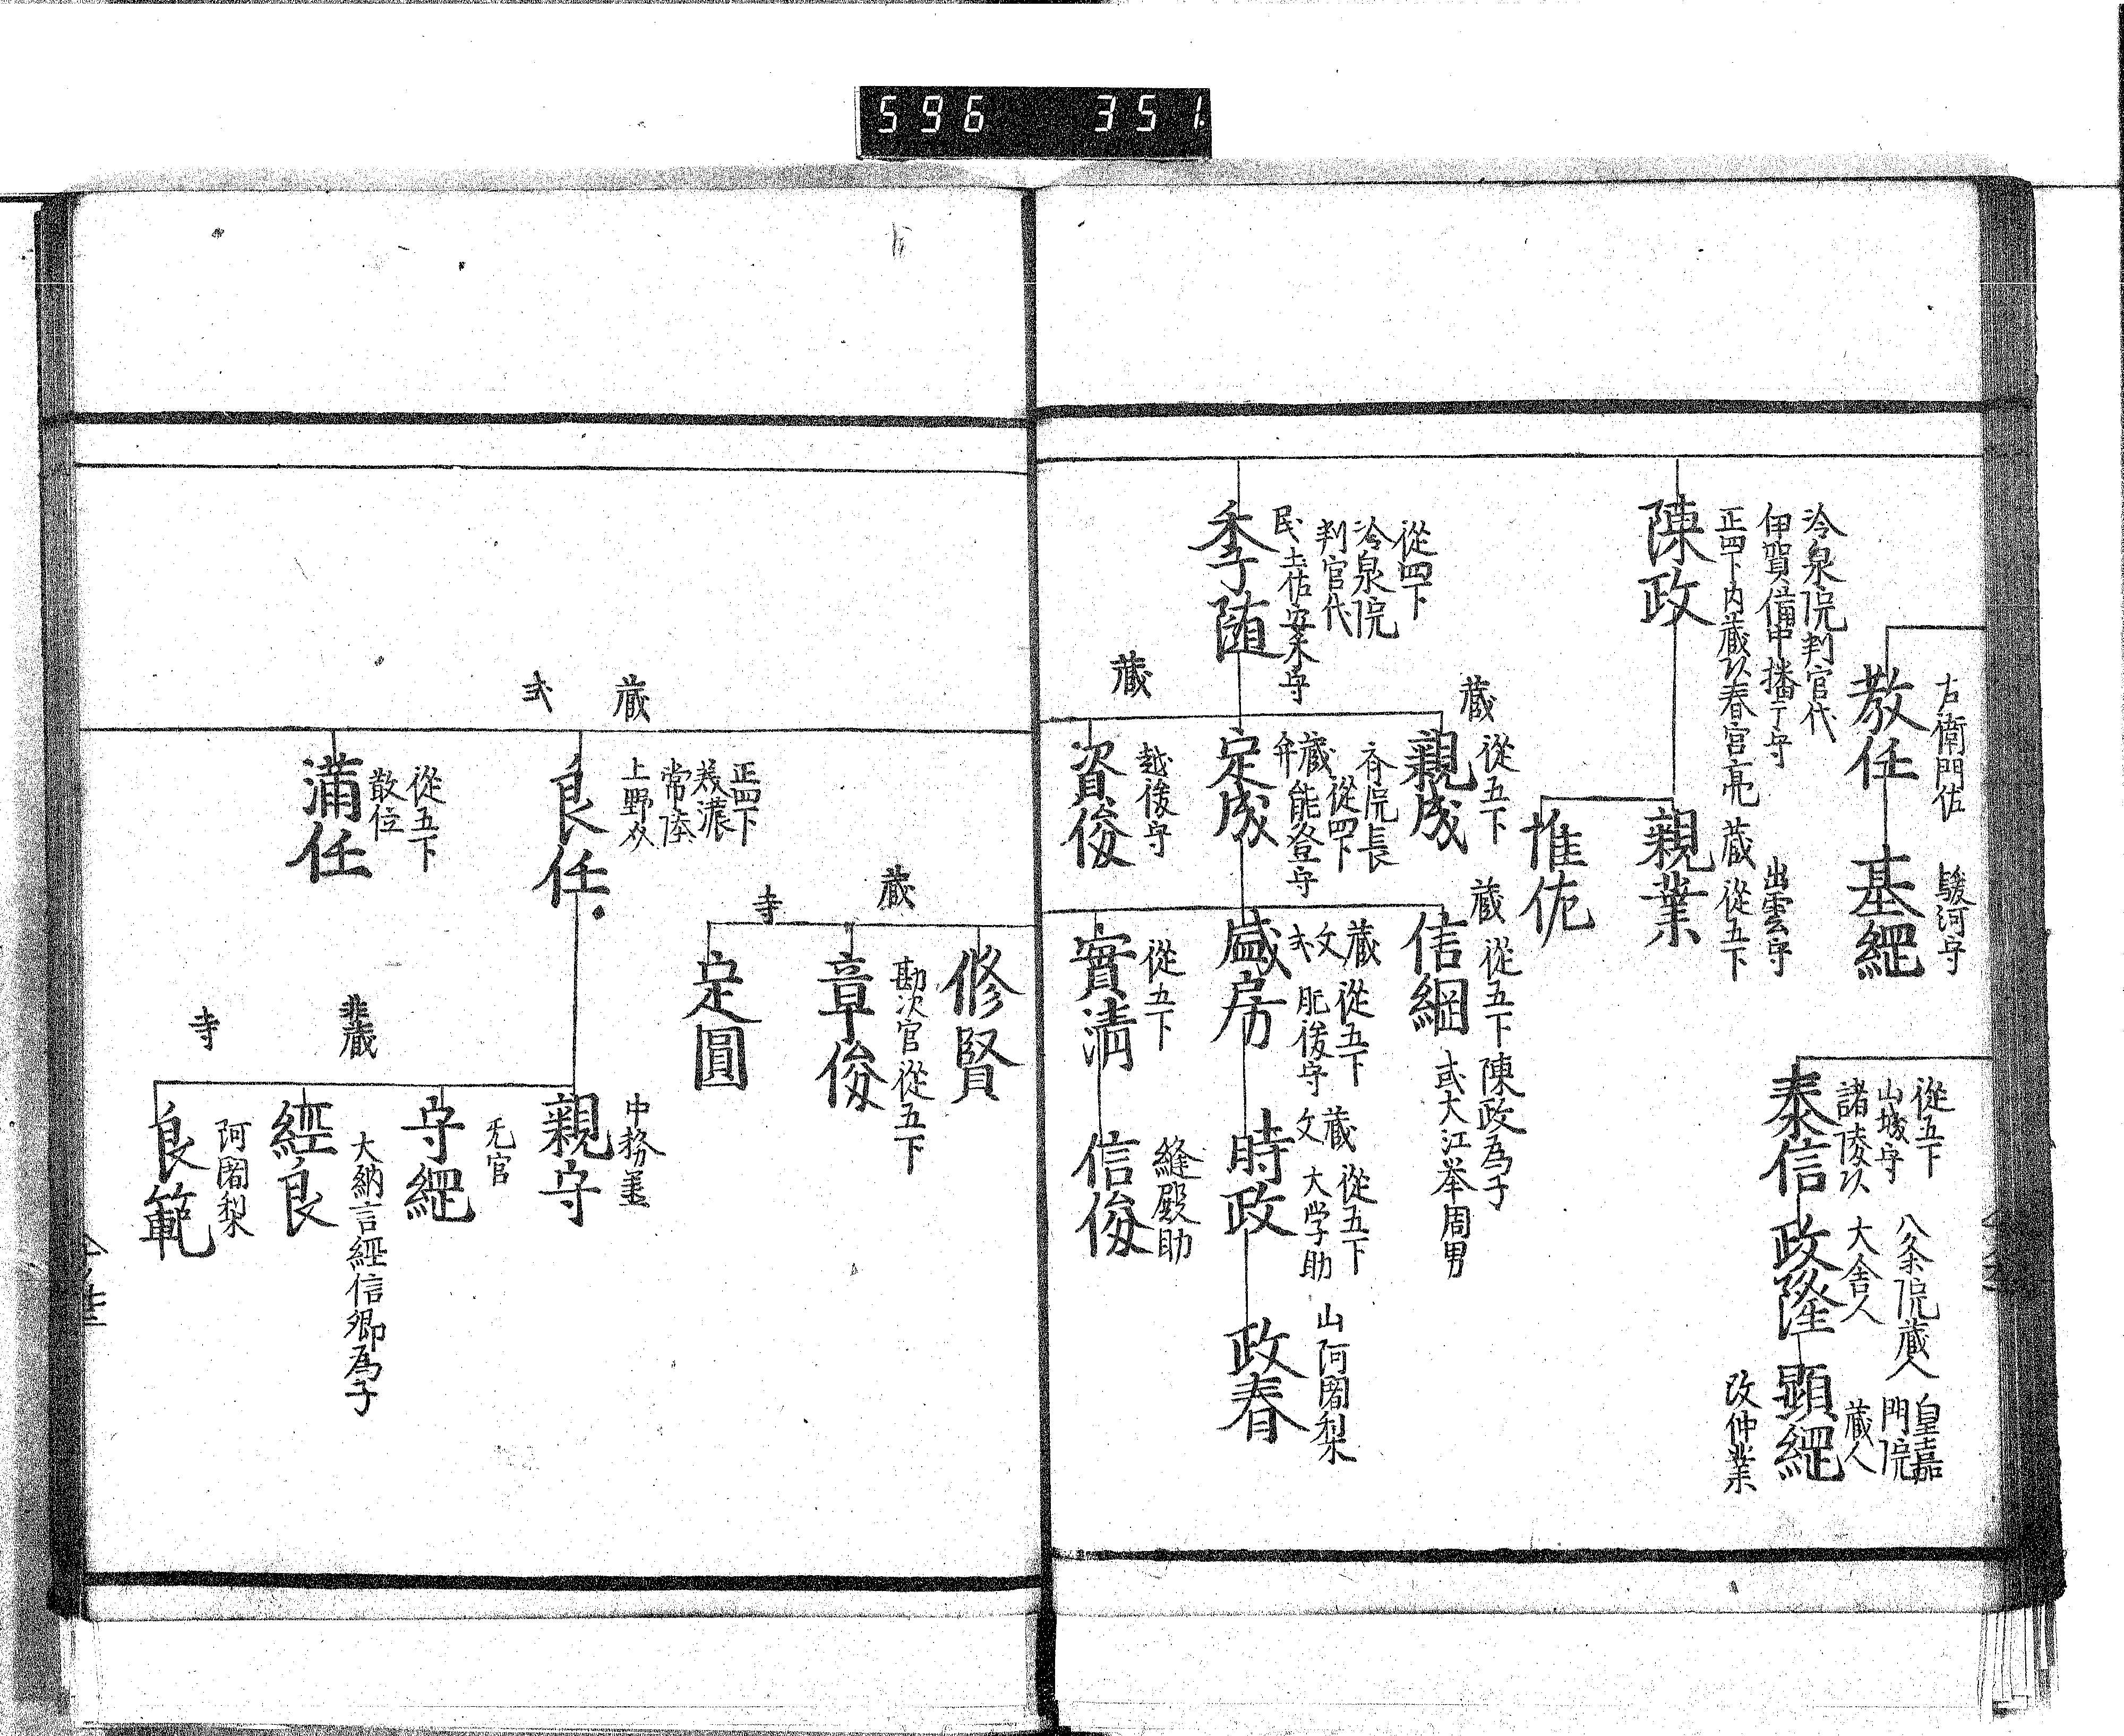 596 351
右衛門佐
教任
駿河守
基經
從五下
山城守
諸陵以
泰信
八条院蔵人
大舎人
政隆
皇嘉
門院
蔵人
顕經
改仲業
冷泉院判官代
伊賀備中播了守
正四下内蔵以春宮亮
陳政
出雲守
蔵從五下
親業
惟佐
從四下
冷泉院
判官代
民士佐安木守
季随
蔵
從五下
親成
蔵
從五下陳政為子
信綱
或大江挙周男
斎院長
從四下
蔵能登守
弁
定成
蔵從五下
文肥後守
式
盛房
蔵從五下
文大学助
時政
山阿闍梨
政春
蔵
越後守
資俊
從五下
實清
縫殿助
信俊
修賢
蔵
勘次官從五下
章俊
寺
定圓
蔵
式
正四下
美濃
常陸
上野介
良任
中務丞
親守
无官
守經
非蔵
大納言經信卿為子
經良
寺
阿闍梨
良範
從五下
散位
蒲任